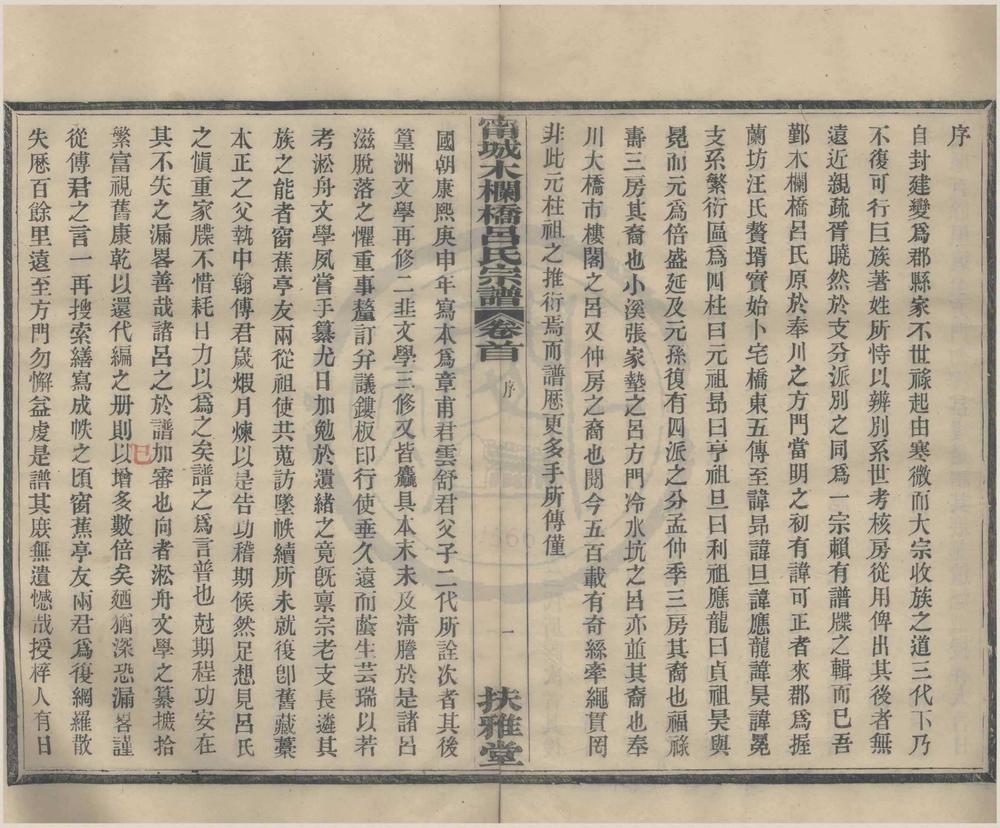 序
自封建變爲郡縣家不世祿起由寒微而大宗收族之道三代下乃
不復可行巨族著姓所恃以辨別系世考核房從用俾出其後者無
遠近親疏胥曉然於支分派別之同爲一宗賴有譜牒之輯而已吾
鄞木欄橋呂氏原於奉川之方門當明之初有諱可正者來郡爲握
蘭坊汪氏贅壻實始卜宅橋東五傳至諱昂諱旦諱應龍諱昊諱冕
支系繁衍區爲四柱曰元祖昂曰亨祖旦曰利祖應龍曰貞祖昊與
冕而元爲倍盛延及元孫復有四派之分孟仲季三房其裔也福祿
壽三房其裔也小溪張家墊之呂方門冷水坑之呂亦並其裔也奉
川大橋市樓閣之呂又仲房之裔也閱今五百載有奇絲牽繩貫罔
非此元柱祖之推衍焉而譜歷更多手所傳僅
甯城木欄橋呂氏宗譜 卷首 序 一 扶雅堂
國朝康熙庚申年寫本爲章甫君雲舒君父子二代所詮次者其後
篁洲文學再修二韭文學三修又皆麤具本末未及淸謄於是諸呂
滋脫落之懼重事釐訂弁議鏤板印行使垂久遠而蔭生芸瑞以若
考淞舟文學夙嘗手纂尤日加勉於遺緒之竟旣禀宗老支長遴其
族之能者窗蕉亭友兩從祖使共蒐訪墜帙續所未就後卽舊藏藁
本正之父執中翰傅君嵗煆月煉以是告功稽期候然足想見呂氏
之愼重家牒不惜耗日力以爲之矣譜之爲言普也尅期程功安在
其不失之漏畧善哉諸呂之於譜加審也向者淞舟文學之纂摭拾
繁富視舊康乾以還代編之册則以增多數倍矣廼猶深恐漏畧謹
從傅君之言一再搜索繕寫成帙之頃窗蕉亭友兩君爲復網羅散
失歷百餘里遠至方門勿懈益虔是譜其庶無遺憾哉授梓人有日
巳